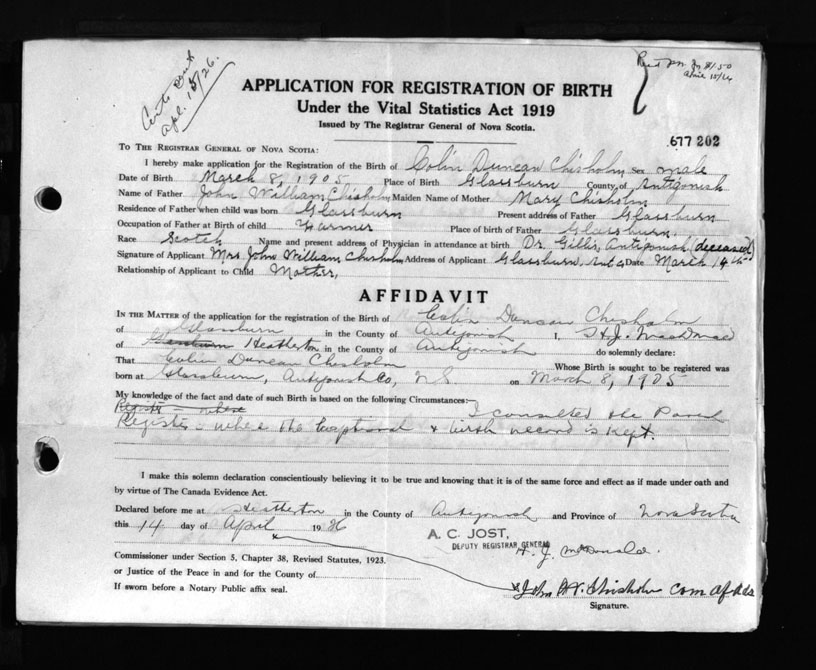 Apl. 15/26.
April 15/26
APPLICATION FOR REGISTRATION OF BIRTH
Under the Vital Statistics Act 1919
Issued by The Registrar General of Nova Scotia.
677 202
TO THE REGISTRAR GENERAL OF NOVA SCOTIA:
I hereby make application for the Registration of the Birth of Colin Duncan Chisholm Sex male
Date of Birth March 8, 1905 Place of Birth Glassburn County of Antigonish
Name of Father John William Chisholm Maiden Name of Mother Mary Chisholm
Residence of Father when child was born Glassburn Present address of Father Glassburn
Occupation of Father at Birth of child Farmer Place of birth of Father Glassburn.
Race Scotch Name and present address of Physician in attendance at birth Dr. Gillis, Antigonish (deceased)
Signature of Applicant Mrs John William Chisholm Address of Applicant Glassburn, Ant Date March 14th
Relationship of Applicant to Child Mother,
AFFIDAVIT
IN THE MATTER of the application for the registration of the Birth of Colin Duncan Chisholm
of Glassburn in the County of Antigonish I,
of Glassburn Heatherton in the County of Antigonish do solemnly declare:
That Colin Duncan Chisholm Whose Birth is sought to be registered was
born at Glassburn, Antigonish Co, N S on March 8, 1905
My knowledge of the fact and date of such Birth is based on the following Circumstances:
Register - where I consulted the Parish
Register - where the baptismal & birth record is kept.
I make this solemn declaration conscientiously believing it to be true and knowing that it is of the same force and effect as if made under oath and
by virtue of The Canada Evidence Act.
Declared before me at Heatherton in the County of Antigonish and Province of Nova Scotia
this 14 day of April 1926
A. C. JOST,
DEPUTY REGISTRAR GENERAL
H. J. McDonald.
Commissioner under Section 5, Chapter 38, Revised Statutes, 1923.
or Justice of the Peace in and for the County of
If sworn before a Notary Public affix seal.
John W. Chisholm Com of Afds
Signature.